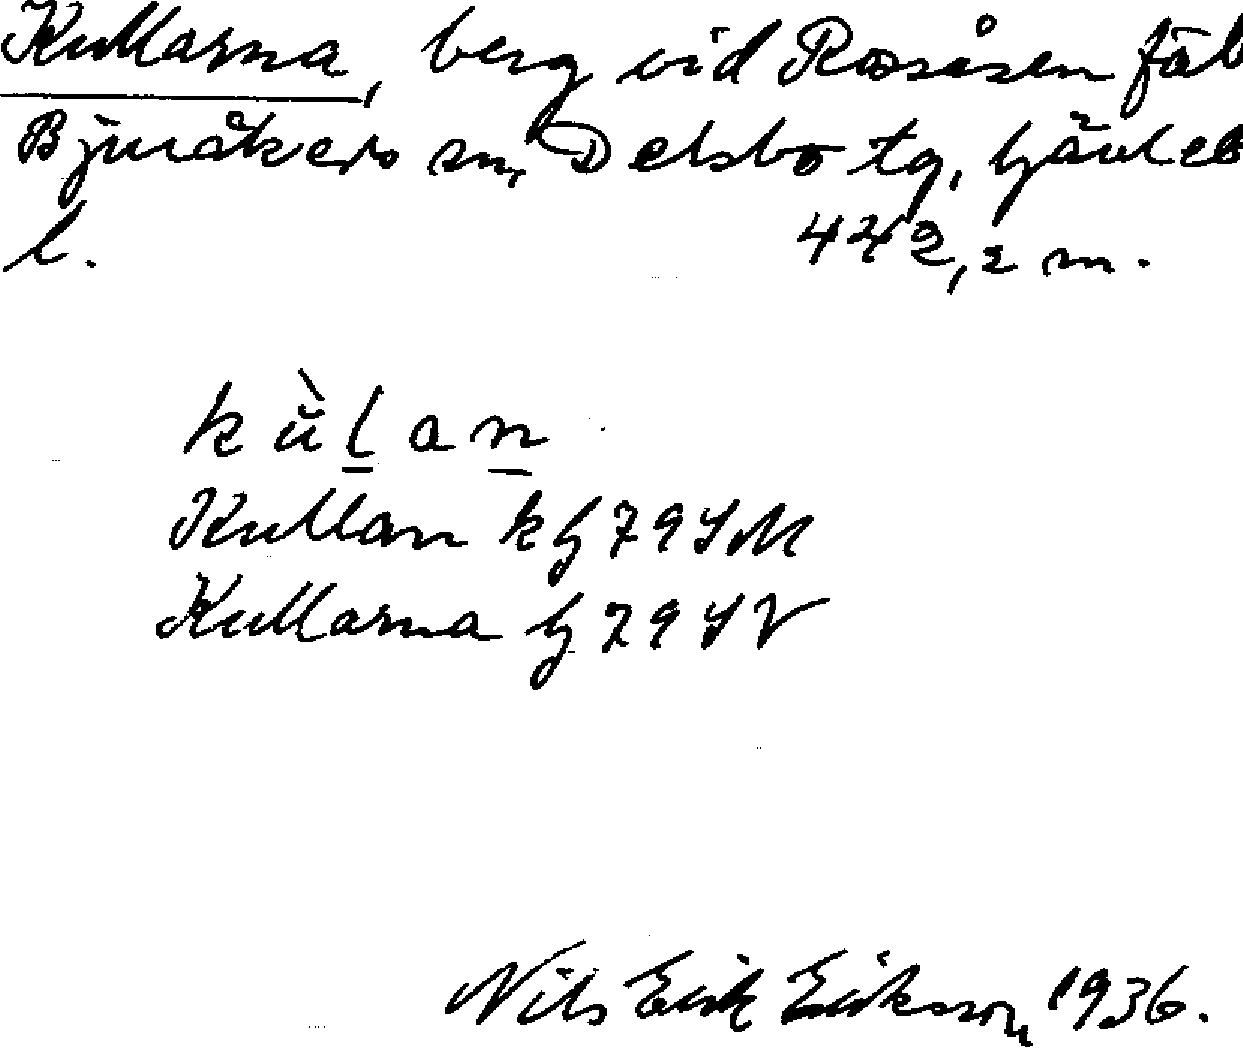 Kullarna, berg vid Rosåsen fäb
Bjuråkers sn, Delsbo tg, Gävleb
l. 442,2 m.
kùlan
Kullan kG 79 SM
Kullarna G 79 SV
Nils Erik Eriksson, 1936.